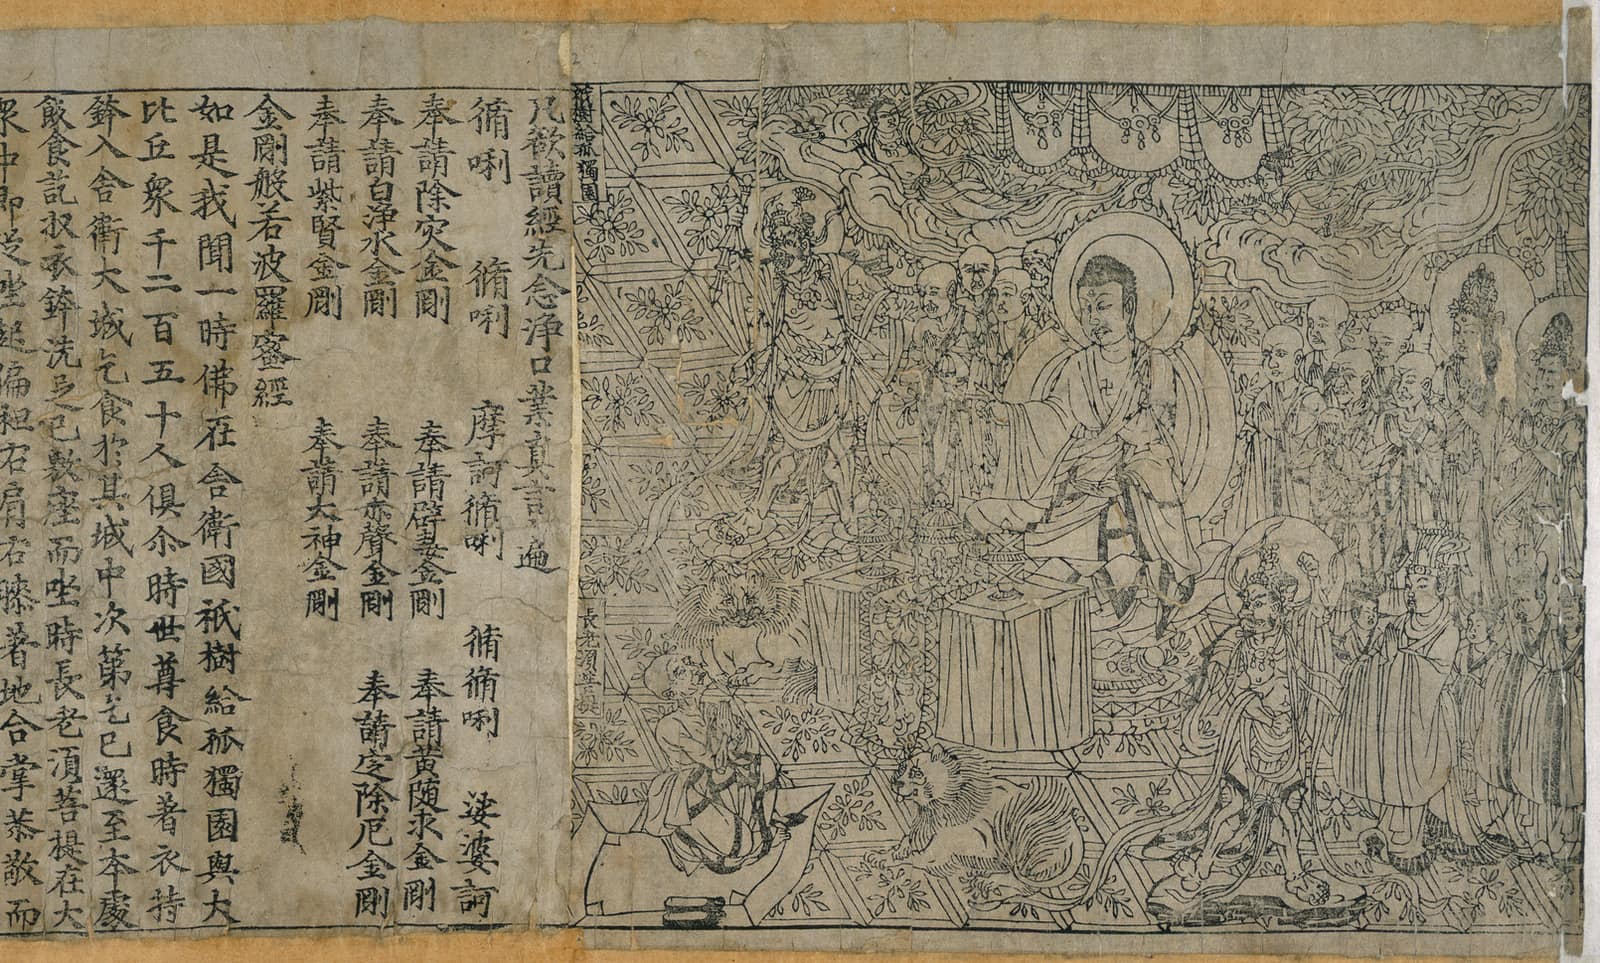 祇樹給孤獨園
長老須菩提
凡欲讀經先念淨口業真言遍
脩唎 脩唎 摩訶脩唎 脩脩唎 娑婆訶
奉請除灾金剛 奉請辟毒金剛 奉請黃随求金剛
奉請白淨水金剛 奉請赤聲金剛 奉請定除厄金剛
奉請紫賢金剛 奉請大神金剛
金剛般若波羅蜜經
如是我聞一時佛在舍衛國祇樹給孤獨園與大
比丘衆千二百五十人俱尒時世尊食時著衣持
鉢入舍衛大城乞食於其城中次第乞已還至本處
飯食訖收衣鉢洗足已敷座而坐時長老須菩提在大
衆中即從坐起偏袒右肩右膝著地合掌恭敬而